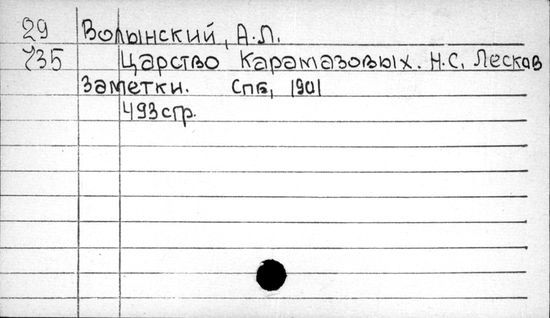 29 Волынский, А.Л.
735 Царство Карамазовых. Н.С. Лесков
Заметки. Спб, 1901
493стр.